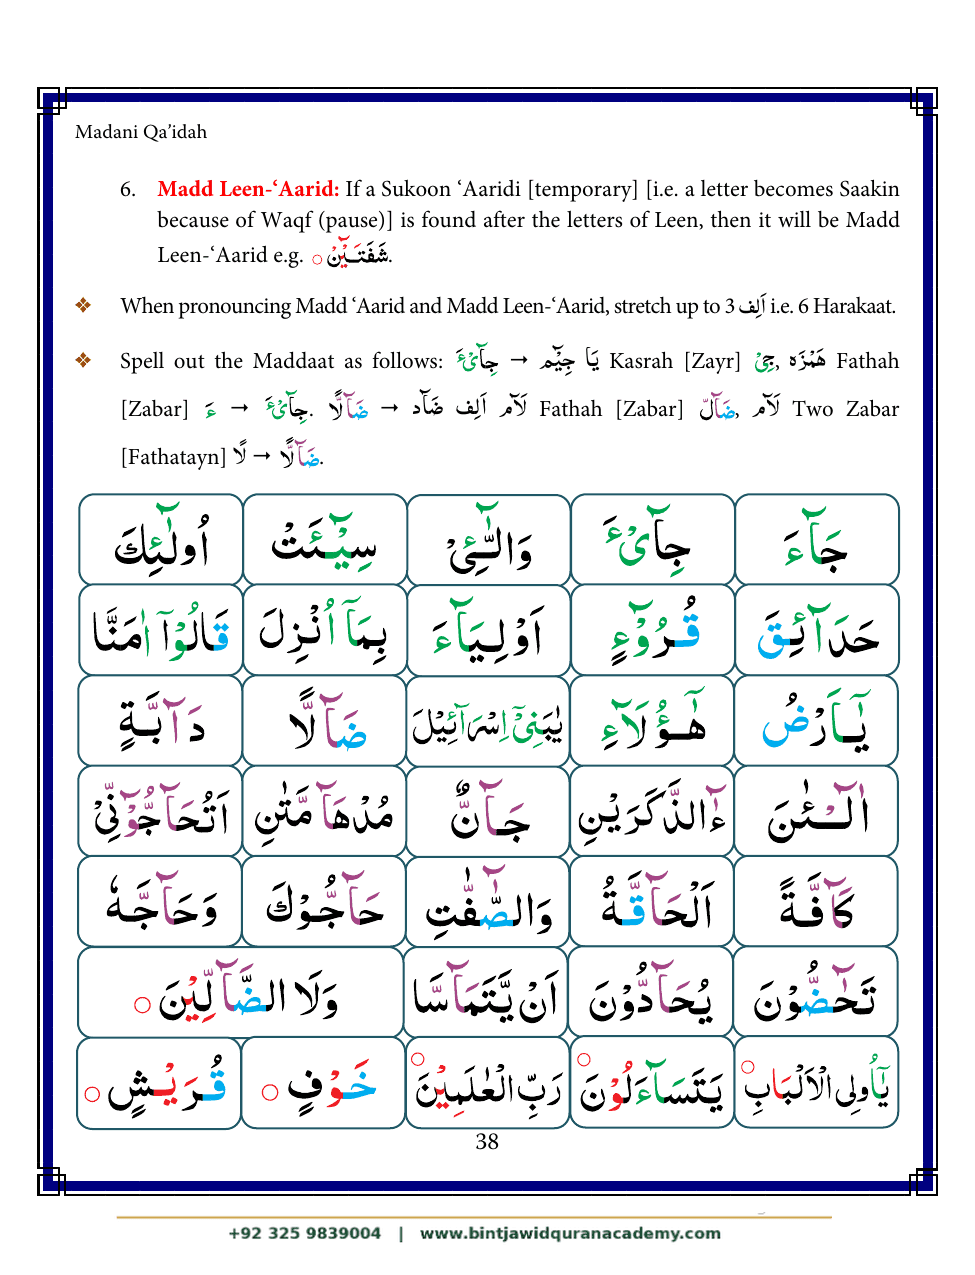 Madani Qa’idah
6. Madd Leen-‘Aarid: If a Sukoon ‘Aaridi [temporary] [i.e. a letter becomes Saakin
because of Waqf (pause)] is found after the letters of Leen, then it will be Madd
Leen-‘Aarid e.g. شَفَتَيْنِ ○.
❖ When pronouncing Madd ‘Aarid and Madd Leen-‘Aarid, stretch up to 3 اَلِف i.e. 6 Harakaat.
❖ Spell out the Maddaat as follows: جِآیْٓءَ → جِیْٓم یَا Kasrah [Zayr] جِیْ, هَمْزَه Fathah
[Zabar] ءَ → جِآیْٓءَ. ضَآلًّا → ضَآد اَلِف لَآم Fathah [Zabar] ضَآلّ, لَآم Two Zabar
[Fathatayn] لًا → ضَآلًّا.
جَآءَ جِآیْٓءَ وَالّٰٓـِٔیْ سِیْٓـَٔتْ اُولٰٓئِكَ
حَدَآئِقَ قُرُوْٓءٍ اَوْلِیَآءَ بِمَاۤ اُنْزِلَ قَالُوْۤا اٰمَنَّا
یٰۤاَرْضُ هٰۤؤُلَآءِ یٰبَنِیْۤ اِسْرَآئِیْلَ ضَآلًّا دَآبَّةٍ
آلْـٰٔنَ ءٰٓالذَّكَرَیْنِ جَآنٌّ مُدْهَآمَّتٰنِ اَتُحَآجُّوْٓنِّیْ
كَآفَّةً اَلْحَآقَّةُ وَالصّٰٓفّٰتِ حَآجُّوْكَ وَحَآجَّهٗ
تَحٰٓضُّوْنَ یُحَآدُّوْنَ اَنْ یَّتَمَآسَّا وَلَا الضَّآلِّیْنَ ○
یٰۤاُولِی الْاَلْبَابِ ○ یَتَسَآءَلُوْنَ ○ رَبِّ الْعٰلَمِیْنَ ○ خَوْفٍ ○ قُرَیْشٍ ○
38
+92 325 9839004 | www.bintjawidquranacademy.com